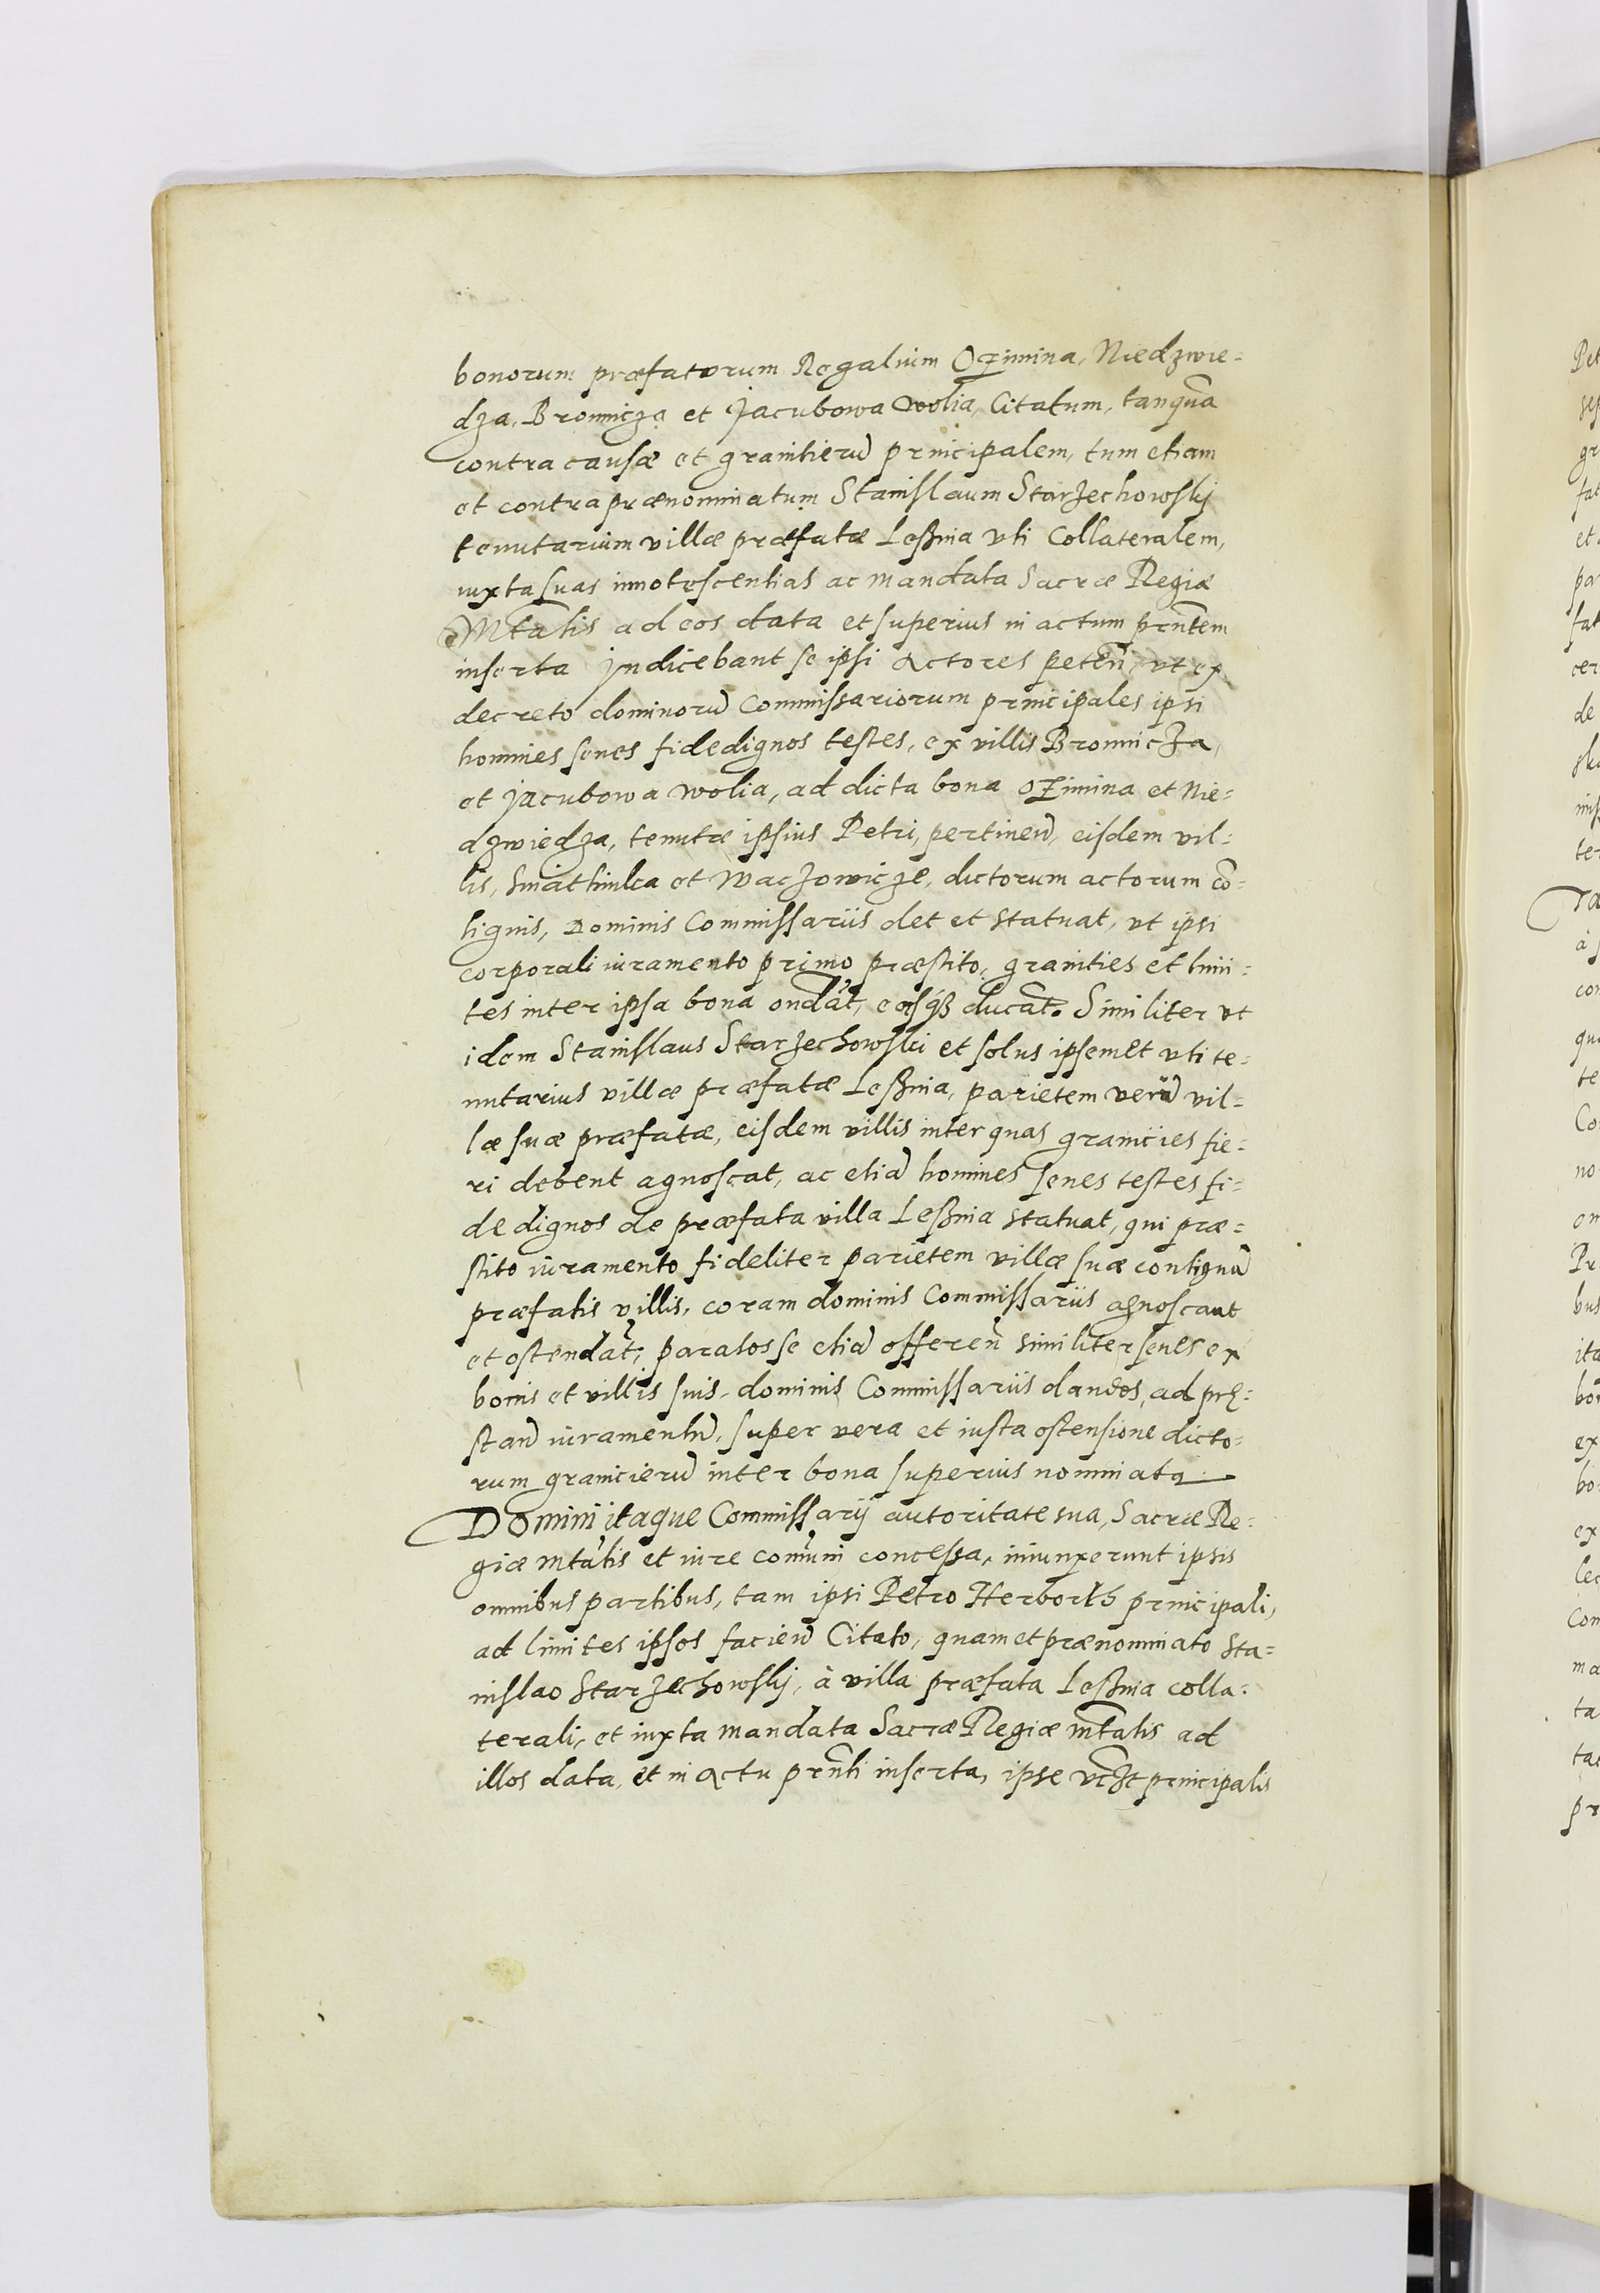 bonorum præfatorum Regalium Ozimina, Niedzwie-
dza, Bronnicza et Jacubowa wolia, Citatum, tanqua͂
contra causæ et granitieru͂ principalem, tum etiam
et contra prænominatum Stanislaum Starzechowskÿ
tenutarium villæ præfatæ Leßnia vti Collateralem,
iuxta suas innotescentias ac mandata Sacræ Regiæ
Mta͂tis ad eos data et superius in actum prn͂tem
inserta Jndicebant se ipsi Actores peten͂, vt ex
decreto dominoru͂ Commissariorum principales ipsi
homines senes fidedignos testes, ex villis Bronnicza,
et Jacubowa wolia, ad dicta bona Ozimina et Nie-
dzwiedza, tenutæ ipsius Petri, pertinen͂, eisdem vil-
lis, Smathinlca et Waczowicze, dictorum actorum co͂-
tiguis, Dominis Commissariis det et statuat, vt ipsi
corporali iuramento primo præstito, granities et limi-
tes inter ipsa bona onda͂t, eosqȝ duca͂t. Similiter vt
idem Stanislaus Starzechowski et solus ipsemet vti te-
nutarius villæ præfatæ Leßnia, parietem veru͂ vil-
læ suæ præfatæ, eisdem villis inter quas granicies fie-
ri debent agnoscat, ac etia͂ homines senes testes fi-
dedignos de præfata villa Leßnia statuat, qui præ-
stito iuramento fideliter parietem villæ suæ contigua͂
præfatis villis, coram dominis Commissariis agnoscant
et ostenda͂t, paratos se etia͂ offeren͂ similiter senes ex
bonis et villis suis, dominis Commissariis dandos, ad prę-
stan͂ iuramentu͂, super vera et iusta ostensione dicto-
rum granicieru͂ inter bona superius nominata
Domini itaque Commissarij autoritate sua, Sacræ Re-
giæ Mta͂tis et iure com͂uni concessa, iniunxerunt ipsis
omnibus partibus, tam ipsi Petro Herborth principali,
ad limites ipsos facien͂ Citato, quam et prænominato Sta-
nislao Starzechowskÿ, à villa præfata Leßnia colla-
terali, et iuxta mandata Sacræ Regiæ Mta͂tis ad
illos data, et in Actu prn͂ti inserta, ipse principalis